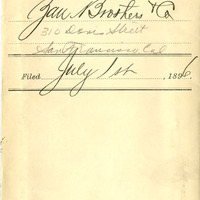 Zan Brothers & Co
310 Davis Street
San Francisco Cal
Filed July 1st, 1896.